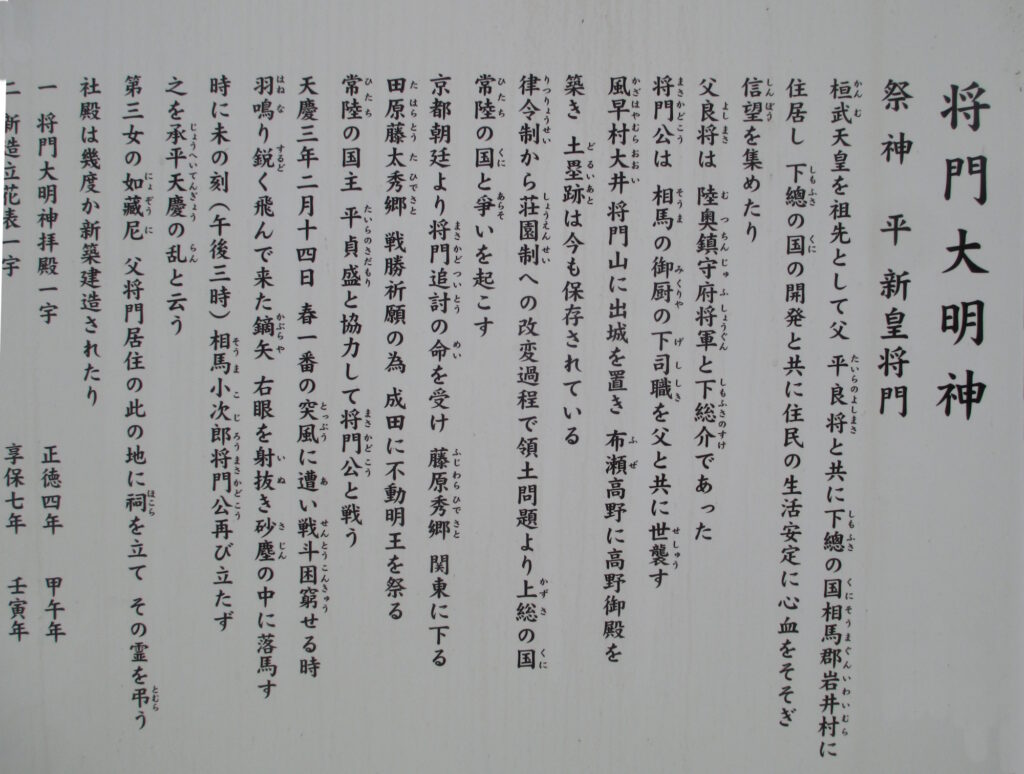 将門大明神
祭神 平 新皇将門
桓武天皇を祖先として父 平良将と共に下總の国相馬郡岩井村に
住居し 下總の国の開発と共に住民の生活安定に心血をそそぎ
信望を集めたり
父良将は 陸奥鎮守府将軍と下総介であった
将門公は 相馬の御厨の下司職を父と共に世襲す
風早村大井 将門山に出城を置き 布瀬高野に高野御殿を
築き 土塁跡は今も保存されている
律令制から荘園制への改変過程で領土問題より上総の国
常陸の国と爭いを起こす
京都朝廷より将門追討の命を受け 藤原秀郷 関東に下る
田原藤太秀郷 戦勝祈願の為 成田に不動明王を祭る
常陸の国主 平貞盛と協力して将門公と戦う
天慶三年二月十四日 春一番の突風に遭い戦斗困窮せる時
羽鳴り鋭く飛んで来た鏑矢 右眼を射抜き砂塵の中に落馬す
時に未の刻(午後三時)相馬小次郎将門公再び立たず
之を承平天慶の乱と云う
第三女の如藏尼 父将門居住の此の地に祠を立て その霊を弔う
社殿は幾度か新築建造されたり
一 将門大明神拝殿一宇 正徳四年 甲午年
二 新造立花表一宇 享保七年 壬寅年